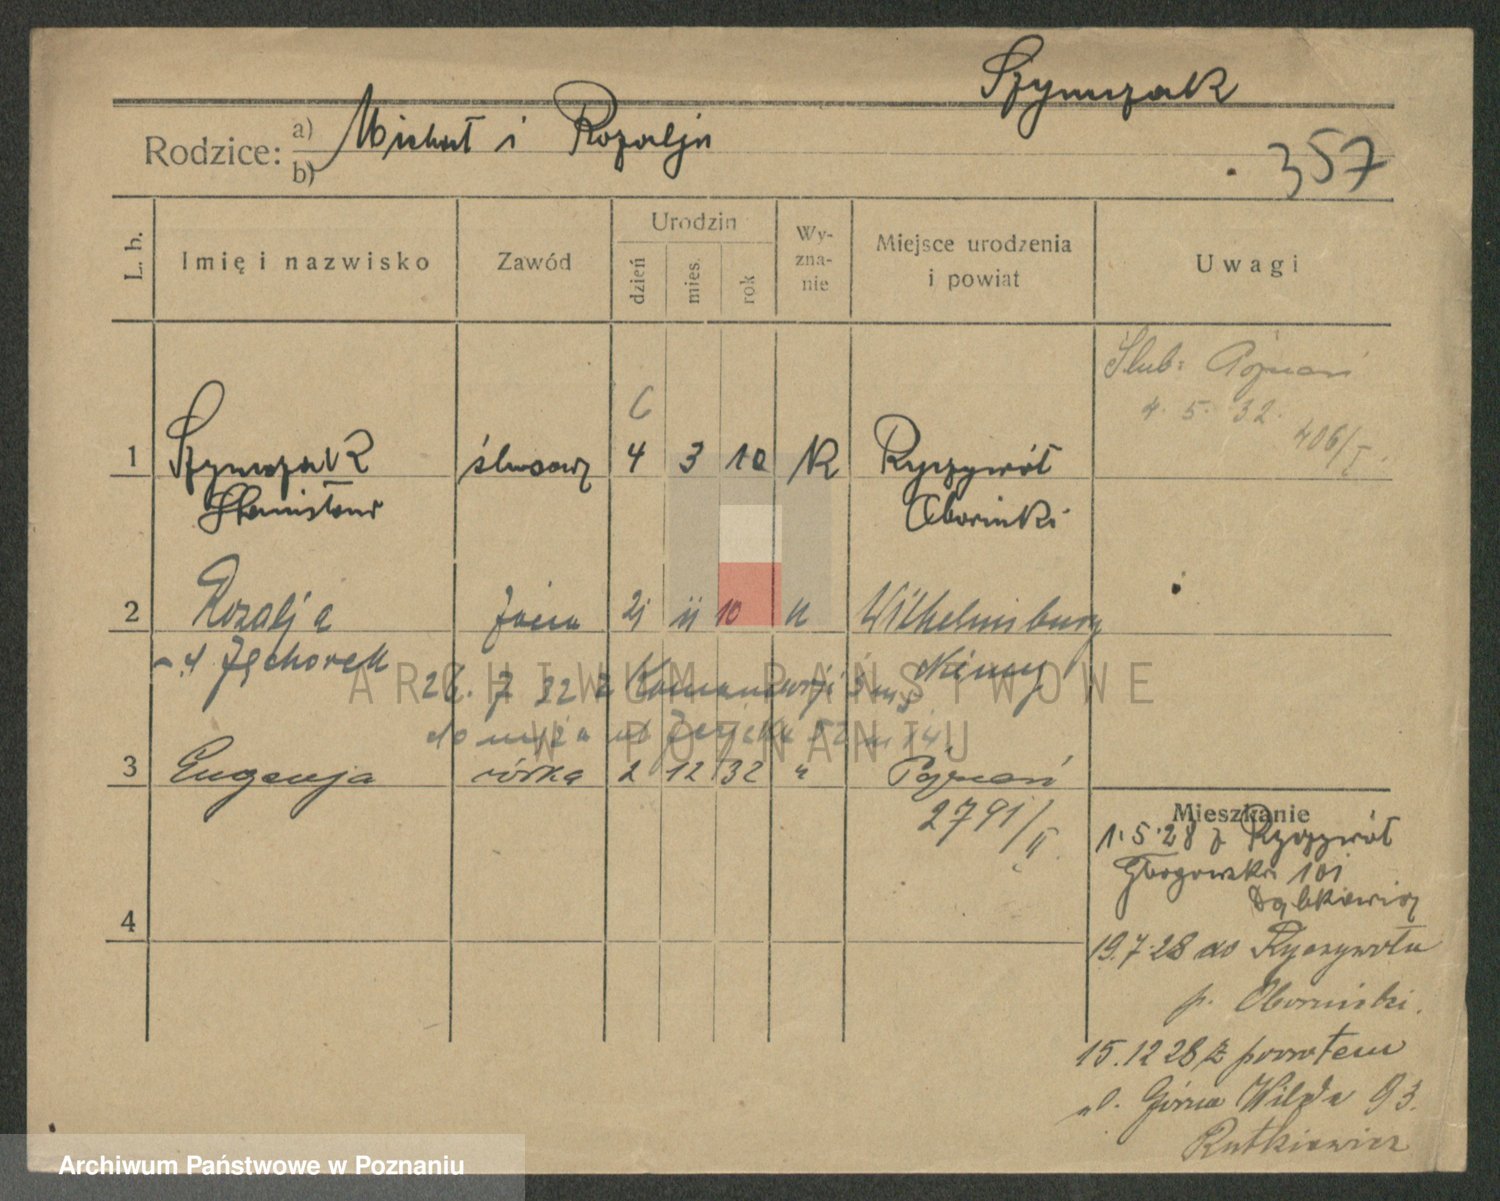 Szymczak
Rodzice: a) b) Michał i Rozalja
357
L. b.
Imię i nazwisko
Zawód
Urodzin
dzień
mies.
rok
Wy-
zna-
nie
Miejsce urodzenia
i powiat
Uwagi
Ślub: Poznań
4. 5. 32.
406/I.
1 Szymczak ślusarz 4 3 10 K Ryczywół
Stanisław Obornicki
2 Rozalja żona 21 11 10 K Wilhelmsburg
Jęchorek Niemcy
26. 7 32 z 3 m 5
do męża ul 52 m 14
3 Eugenja córka 2 12 32 " Poznań
2791/II
4
Mieszkanie
1.5.28 z Ryczywół
Głogowska 101
Dąbkiewicz
19.7.28 do Ryczywołu
p. Obornicki.
15.12 28 z powrotem
ul. Górna Wilda 93.
Rutkiewicz
ARCHIWUM PAŃSTWOWE
W POZNANIU
Archiwum Państwowe w Poznaniu